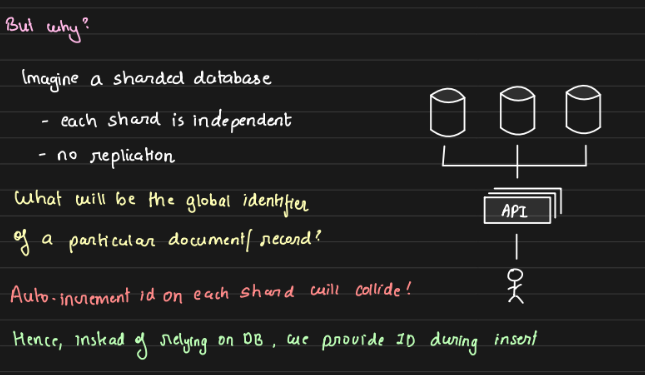 But why?
Imagine a sharded database
- each shard is independent
- no replication
What will be the global identifier
of a particular document/record?
API
Auto-increment id on each shard will collide!
Hence, instead of relying on DB, we provide ID during insert